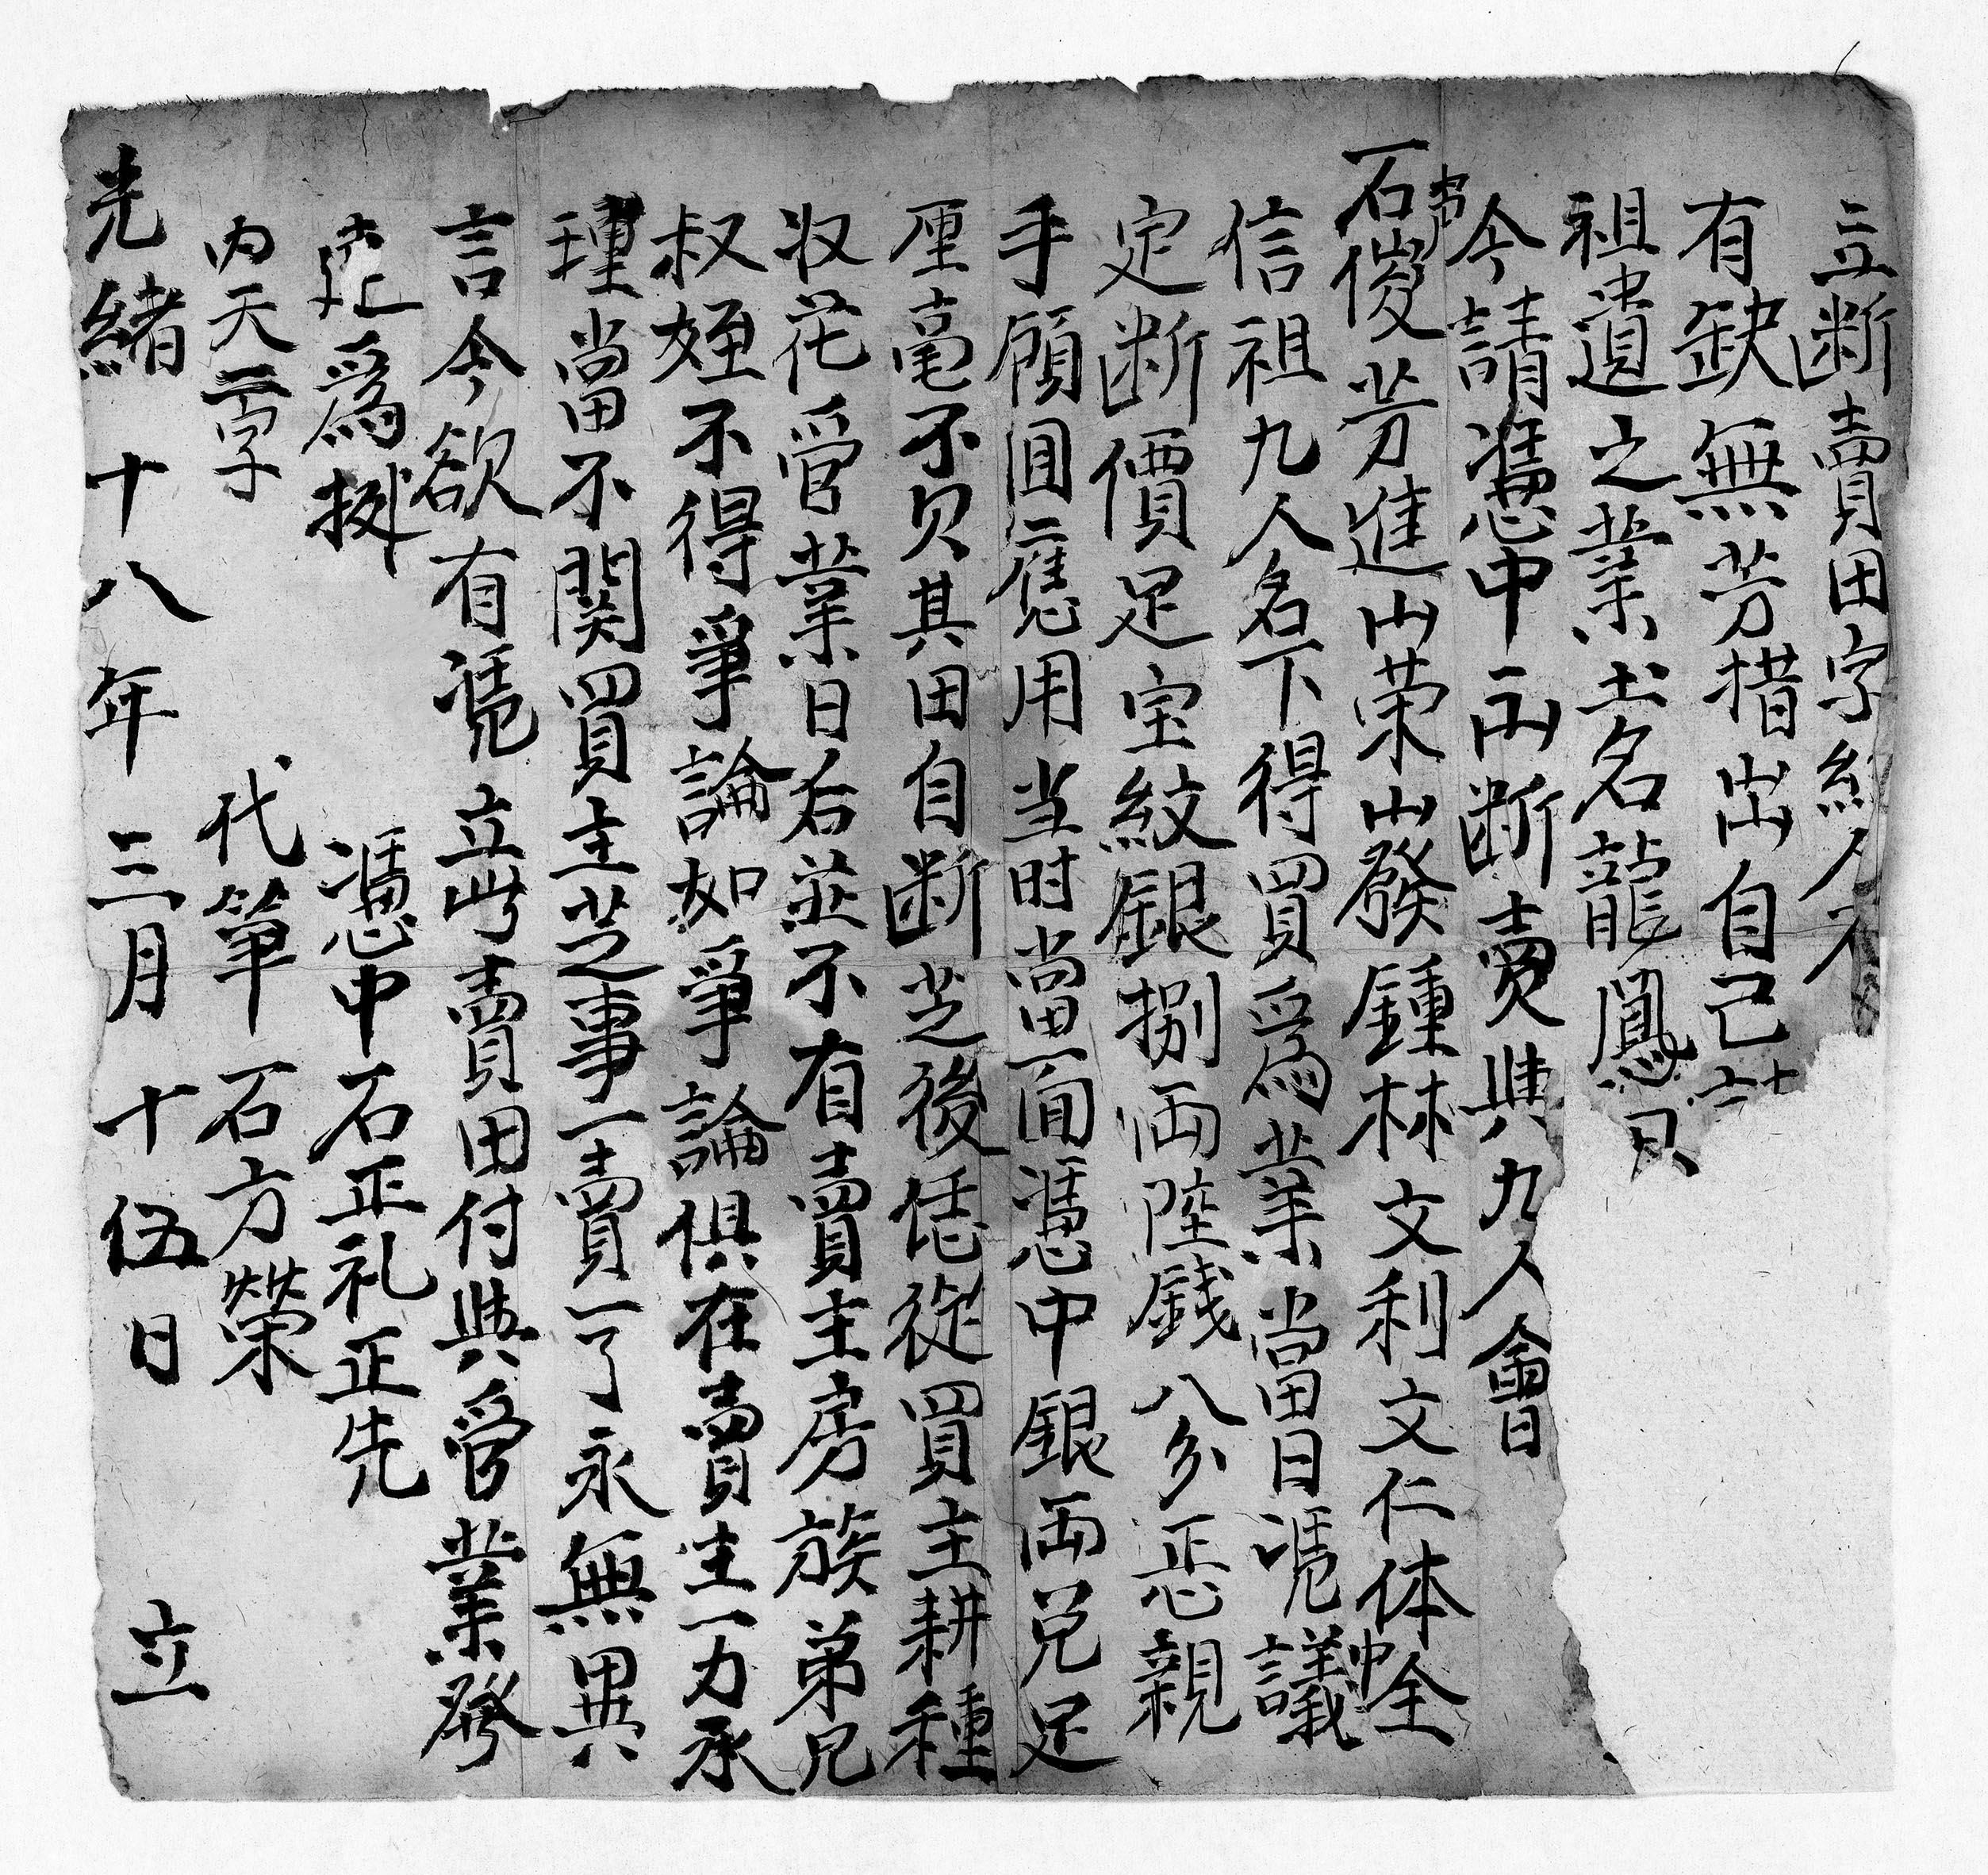 立断賣田字約人石
有缺無芳措出自己
祖遺之業土名龍鳳
今請憑中出断賣與九人會
石俊芳進山荣山發鍾林文利文仁体全
信祖九人名下得買爲業當日凴議
定断價足宝紋銀捌両陸錢八分正親
手領囬應用当时當面憑中銀両兑足
厘毫不欠其田自断芝後恁從買主耕種
収花管業日后並不有賣主房族弟兄
叔姪不得爭論如爭論俱在賣主一力承
理當不関買主芝事一賣一了永無異
言今欲有凴立此賣田付與管業發
達爲據
憑中石正礼正先
内天一字
代筆石方榮
光緒十八年三月十伍日立